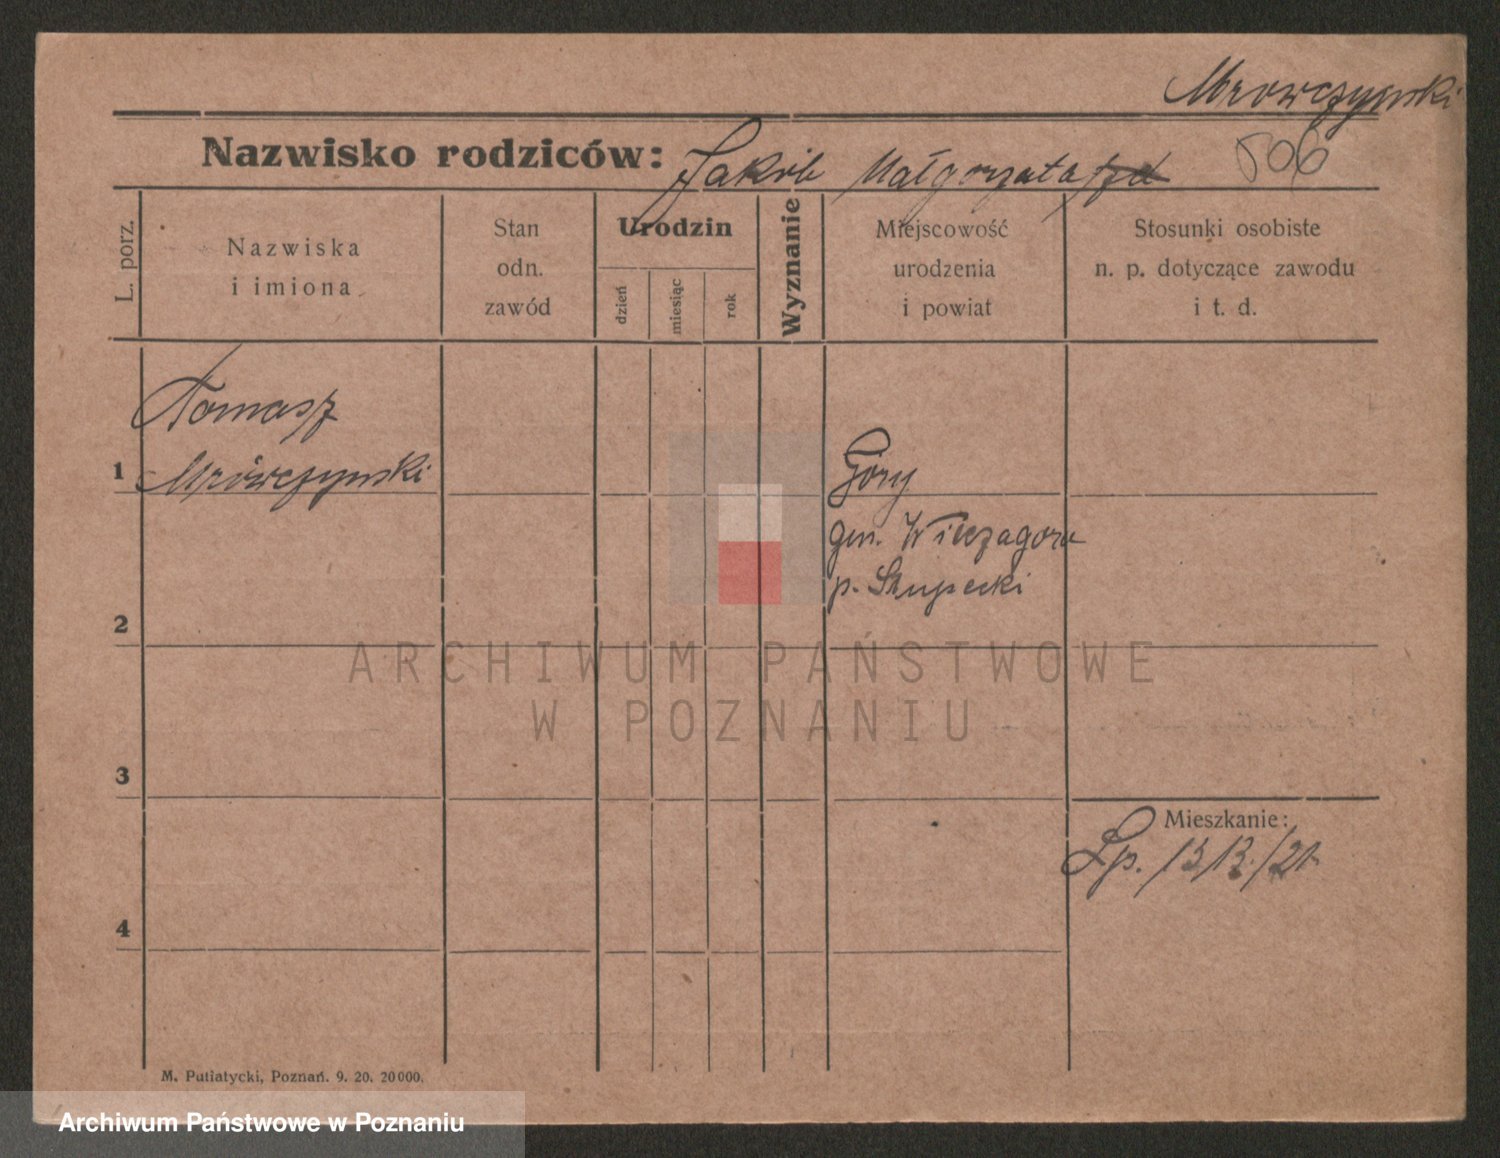 Mrowczynski
Nazwisko rodziców: Jakób Małgorzata 506
L. porz.
Nazwiska
i imiona
Stan
odn.
zawód
Urodzin
dzień
miesiąc
rok
Wyznanie
Miejscowość
urodzenia
i powiat
Stosunki osobiste
n. p. dotyczące zawodu
i t. d.
Tomasz
1 Mrówczynski
Góry
gm. Wilczagora
p. Słupecki
2
ARCHIWUM PAŃSTWOWE
W POZNANIU
3
Mieszkanie:
Lp. 1313./21
4
M. Putiatycki, Poznań. 9. 20. 20000.
Archiwum Państwowe w Poznaniu